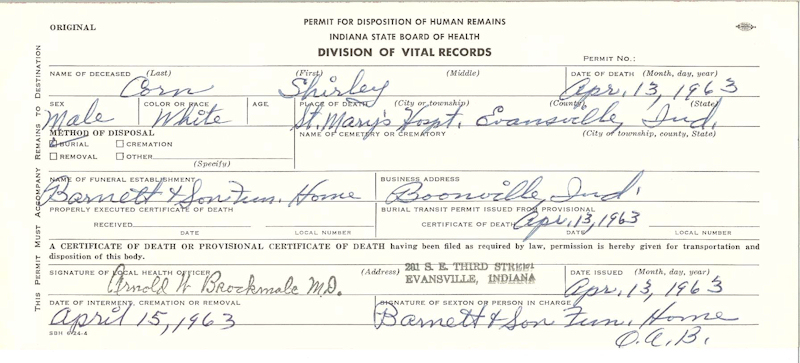 ORIGINAL
PERMIT FOR DISPOSITION OF HUMAN REMAINS
INDIANA STATE BOARD OF HEALTH
DIVISION OF VITAL RECORDS
PERMIT NO.:
THIS PERMIT MUST ACCOMPANY REMAINS TO DESTINATION
NAME OF DECEASED (Last) (First) (Middle) DATE OF DEATH (Month, day, year)
Corn Shirley Apr. 13, 1963
SEX COLOR OR RACE AGE PLACE OF DEATH (City or township) (County) (State)
Male White St. Mary's Hospt. Evansville, Ind.
METHOD OF DISPOSAL NAME OF CEMETERY OR CREMATORY (City or township, county, State)
BURIAL CREMATION
REMOVAL OTHER
(Specify)
NAME OF FUNERAL ESTABLISHMENT BUSINESS ADDRESS
Barnett & Son Fun. Home Boonville, Ind.
PROPERLY EXECUTED CERTIFICATE OF DEATH BURIAL TRANSIT PERMIT ISSUED FROM PROVISIONAL
RECEIVED CERTIFICATE OF DEATH Apr. 13, 1963
DATE LOCAL NUMBER DATE LOCAL NUMBER
A CERTIFICATE OF DEATH OR PROVISIONAL CERTIFICATE OF DEATH having been filed as required by law, permission is hereby given for transportation and
disposition of this body.
SIGNATURE OF LOCAL HEALTH OFFICER (Address) 281 S. E. THIRD STREET DATE ISSUED (Month, day, year)
Arnold W Brockmole M.D. EVANSVILLE, INDIANA Apr. 13, 1963
DATE OF INTERMENT, CREMATION OR REMOVAL SIGNATURE OF SEXTON OR PERSON IN CHARGE
April 15, 1963 Barnett & Son Fun. Home
O.A.B.